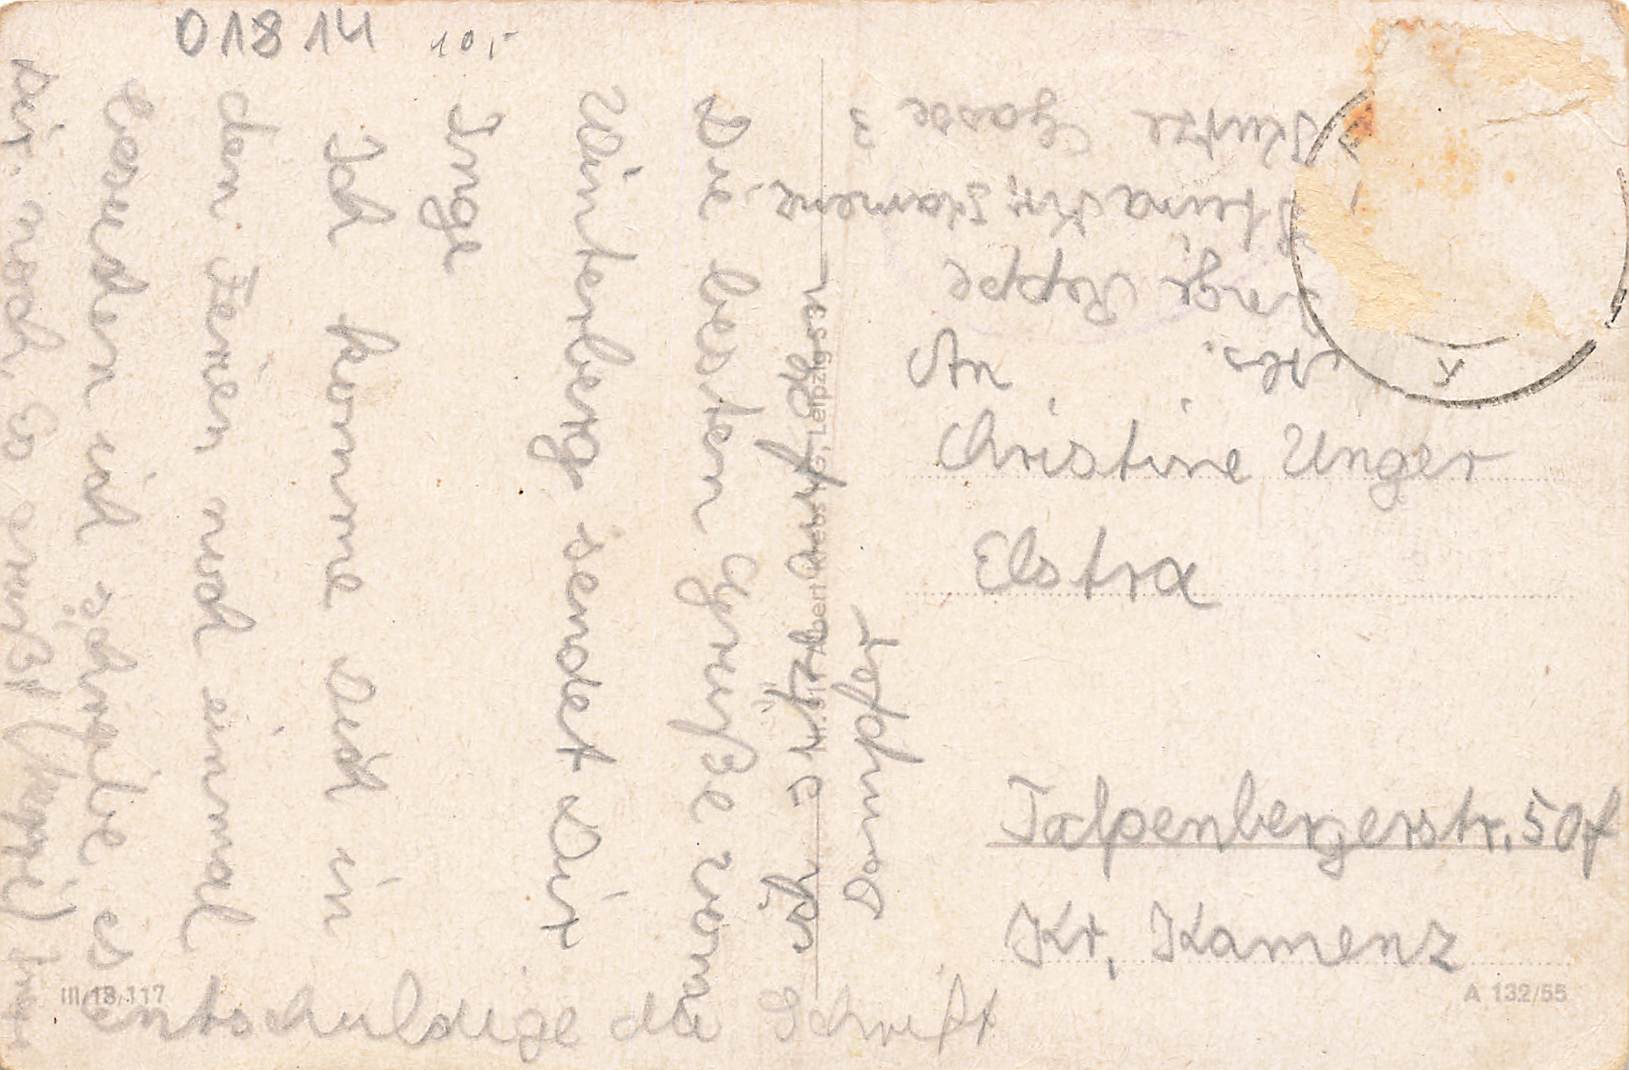 01814 10,-
Die besten Grüße vom
Winterberg sendet Dir
Inge
Ich komme Dich in
den Ferien noch einmal
besuchen ich schreibe es
Dir noch, so
entschuldige die Schrift
auf der
Dampfer
Abs.
Inge Roppe
Steina Kr, Kamenz
Kurtze Gasse 3
An
Christine Unger
Elstra
Talpenbergerstr. 50f
Kr, Kamenz
III/18/117
A 132/55